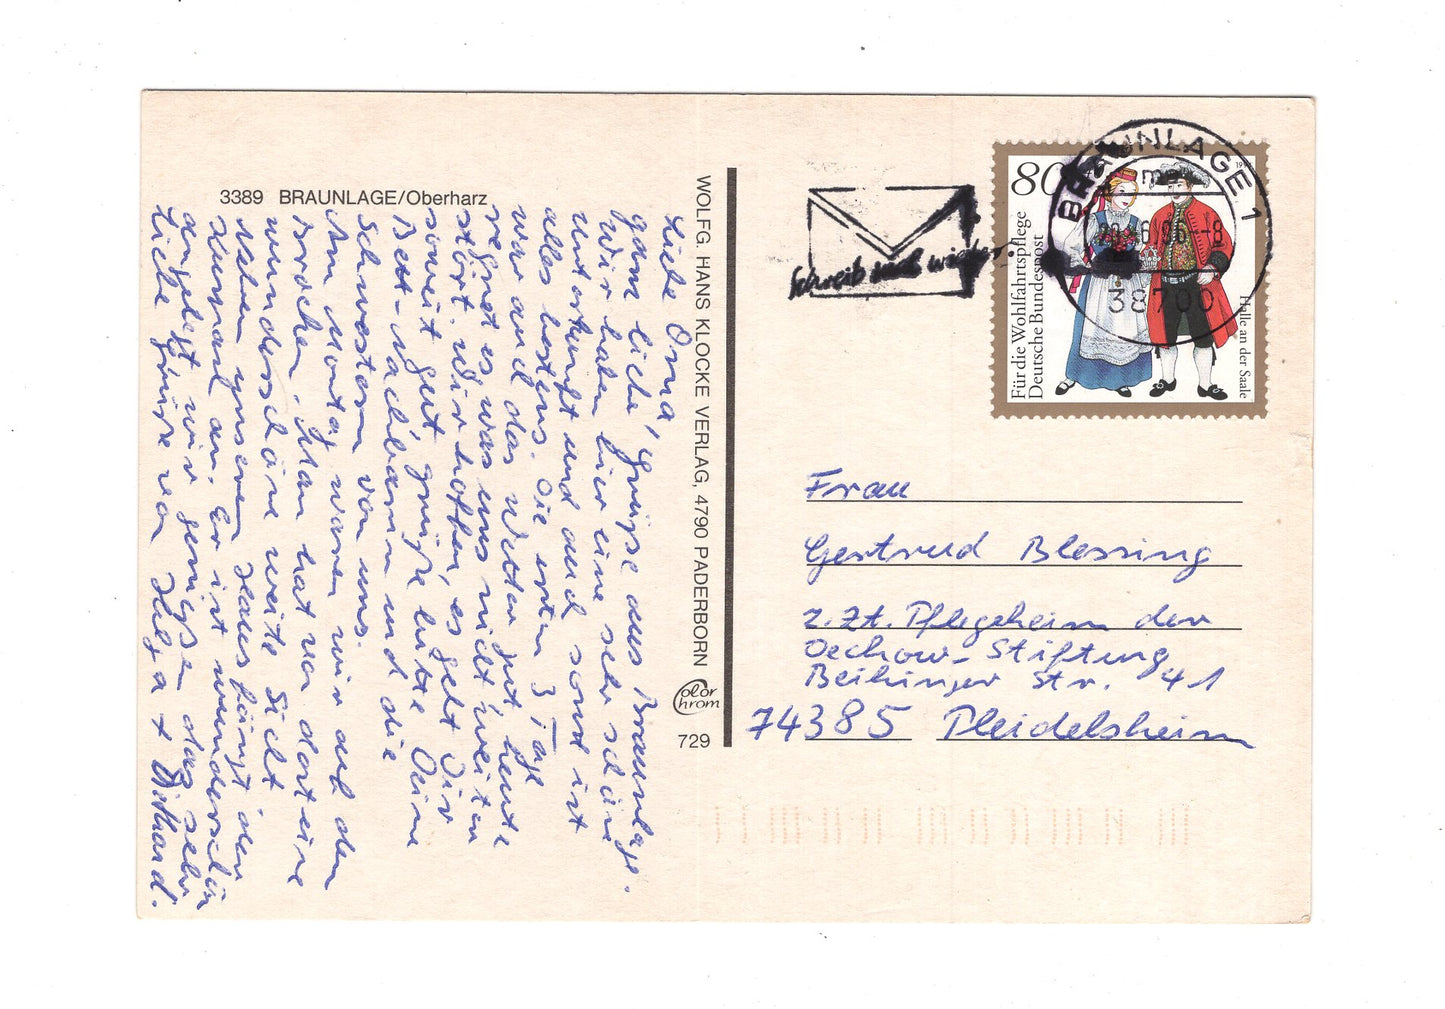 3389 BRAUNLAGE/Oberharz
Liebe Oma,
ganz liebe Grüße aus Braunlage.
Wir haben hier eine sehr schöne
Unterkunft und auch sonst ist
alles bestens. Die ersten 3 Tage
war auch das Wetter gut, heute
regnet es was uns nicht weiter
stört. Wir hoffen, es geht Dir
soweit gut, grüße bitte Deine
Bett-Nachbarin und die
Schwestern von uns.
Am Montag waren wir auf dem
Brocken. Man hat von dort eine
wunderschöne weite Sicht.
Neben unserem Haus fängt der
Kurpark an. Er ist wunderschön
angelegt, wir genießen das sehr
Liebe Grüße von Helga + Diethard.
WOLFG. HANS KLOCKE VERLAG, 4790 PADERBORN
Color
Chrom
729
Schreib mal wieder
80
Für die Wohlfahrtspflege
Deutsche Bundespost
Halle an der Saale
BRAUNLAGE 1
38700
Frau
Gertrud Blessing
z.Zt. Pflegeheim der
Dechow-Stiftung
Beihinger Str. 41
74385 Pleidelsheim